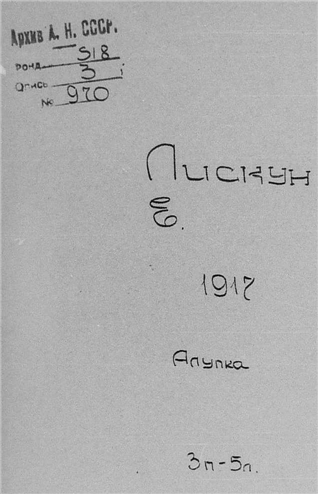 Архив А. Н. СССР.
Фонд 518
Опись 3
№ 970
Лискун
Е.
1917
Алупка
3п-5л.